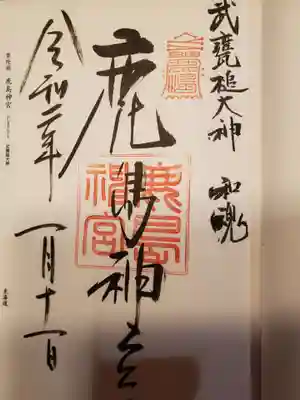 武甕槌大神 和魂
鹿島神宮
鹿島神宮
令和二年 一月十一日
鹿島神宮
東海道